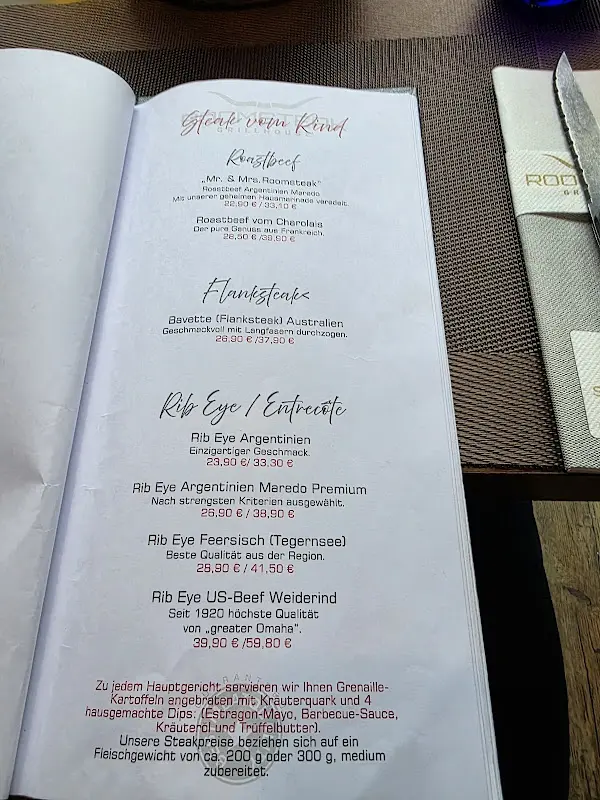 ROOMSTEAK
GRILLHOUSE
Steak vom Rind
Roastbeef
„Mr. & Mrs. Roomsteak“
Roastbeef Argentinien Maredo
Mit unserer geheimen Hausmarinade veredelt.
22,90 € / 33,10 €
Roastbeef vom Charolais
Der pure Genuss aus Frankreich.
28,50 € /39,90 €
Flanksteaks
Bavette (Flanksteak) Australien
Geschmackvoll mit Langfasern durchzogen.
26,90 € /37,90 €
Rib Eye / Entrecôte
Rib Eye Argentinien
Einzigartiger Geschmack.
23,90 €/ 33,30 €
Rib Eye Argentinien Maredo Premium
Nach strengsten Kriterien ausgewählt.
26,90 € / 38,90 €
Rib Eye Feersisch (Tegernsee)
Beste Qualität aus der Region.
28,90 € / 41,50 €
Rib Eye US-Beef Weiderind
Seit 1920 höchste Qualität
von „greater Omaha“.
39,90 € /59,80 €
Zu jedem Hauptgericht servieren wir Ihnen Grenaille-
Kartoffeln angebraten mit Kräuterquark und 4
hausgemachte Dips: (Estragon-Mayo, Barbecue-Sauce,
Kräuteröl und Trüffelbutter).
Unsere Steakpreise beziehen sich auf ein
Fleischgewicht von ca. 200 g oder 300 g, medium
zubereitet.
ROO
GR